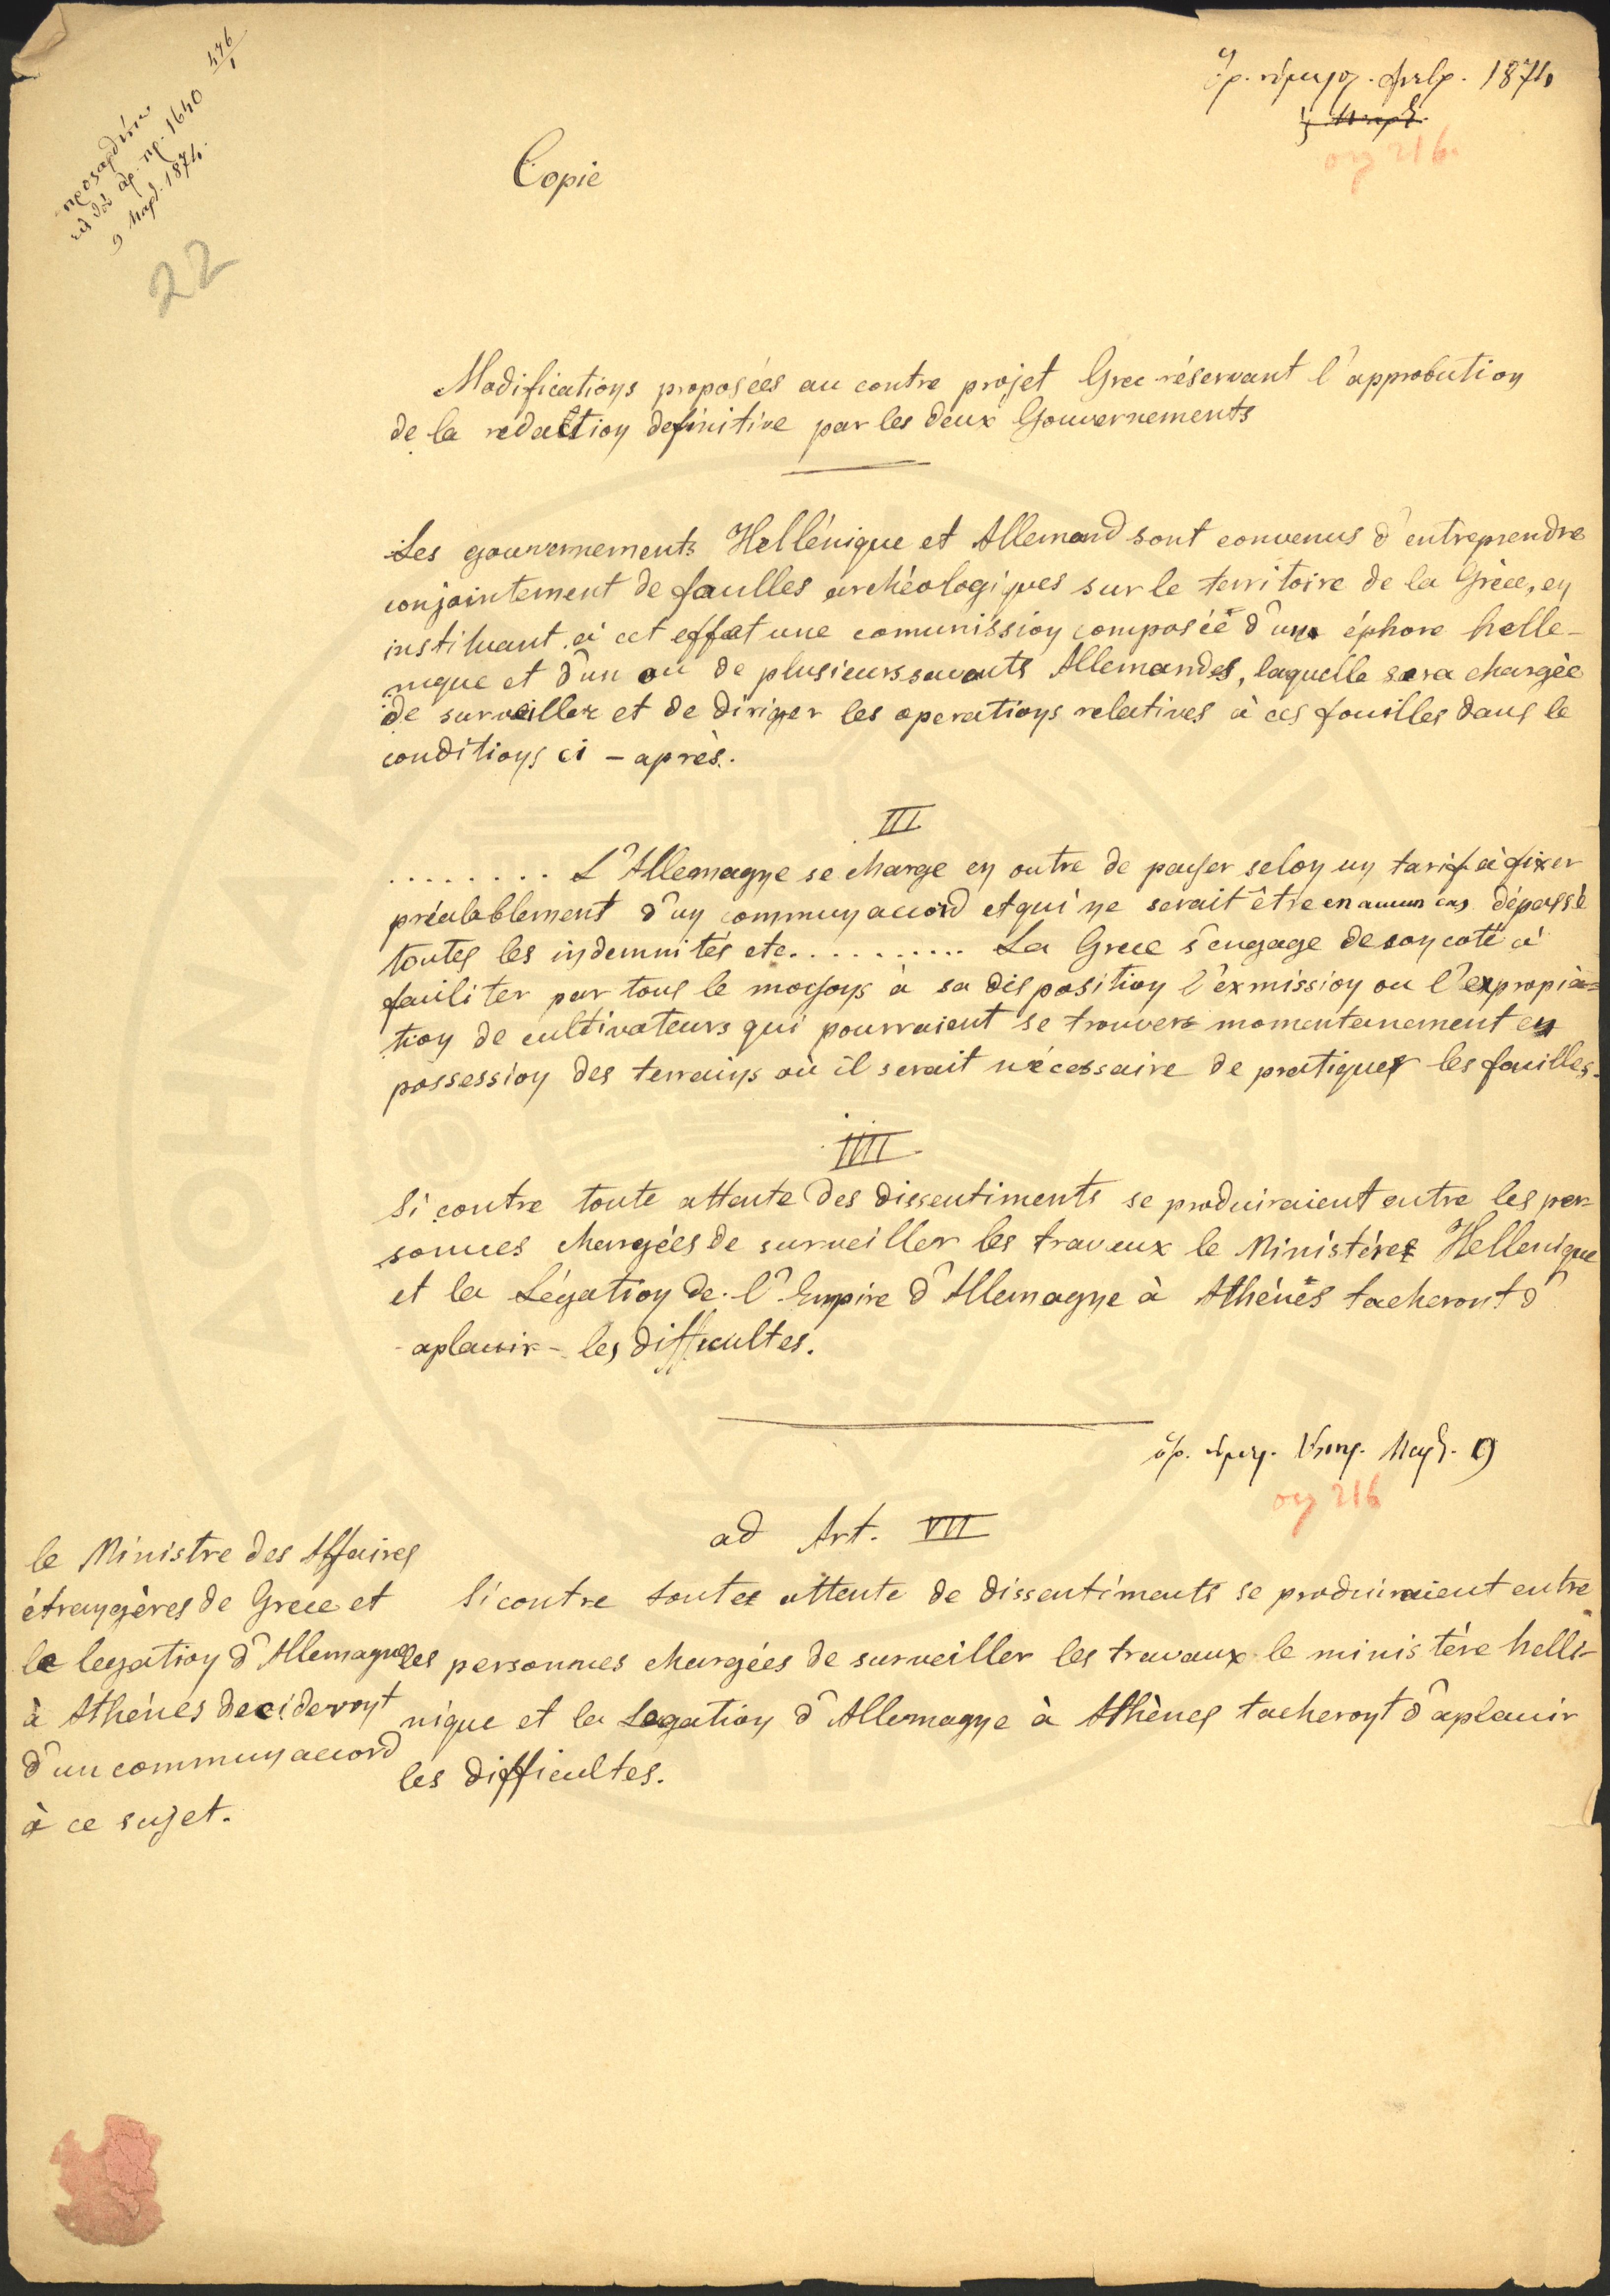 476/1
1640
9 Μαρτ. 1874.
22
1874
216.
Copie
Modifications proposées au contre projet Grec réservant l'approbution
de la redaction definitive par les deux Gouvernements
Les gouvernements Hellénique et Allemand sont convenus d'entreprendre
conjointement de faulles archéologiques sur le territoire de la Grèce, en
instituant à cet effet une comunission composée d'un éphore helle-
nique et d'un ou de plusieurs savants Allemandes, laquelle sera chargée
de surveiller et de diriger les operations relatives à ces fouilles dans le
conditions ci - après.
III
......... L'Allemagne se charge en outre de payer selon un tarif à fixer
préalablement d'un commun accord et qui ne serait être en aucun cas dépassé
toutes les indemnités etc........... La Grece s'engage de son coté à
faciliter par tous le moyons à sa disposition l'exmission ou l'expropia=
tion de cultivateurs qui pourraient se trouver momentanement en
possession des terrains où il serait nécessaire de pratiquer les fouilles.
IIII
Si contre toute attente des dissentiments se produiraient entre les per-
sonnes chargées de surveiller les travaux le Ministére Hellenique
et la Légation de l'Empire d'Allemagne à Athénes tacheront d'
aplanir les difficultes.
Μαρτ. 9
216
ad Art. VII
le Ministre des Affaires
étrangères de Grece et
la legation d'Allemagne
à Athénes decideront
d'un commun accord
à ce sujet.
Si contre toute attente de dissentiments se produiraient entre
les personnes chargées de surveiller les travaux le ministère hellé-
nique et la Legation d'Allemagne à Athènes tacheront d'aplanir
les difficultes.